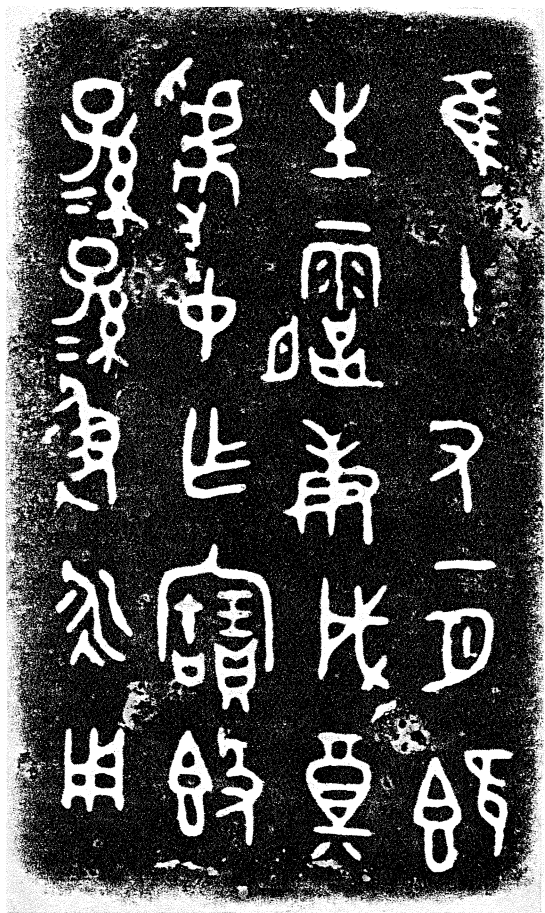 隹十又一月既
生霸庚戌奠
虢中乍寶𣪘
子子孫孫彶永用